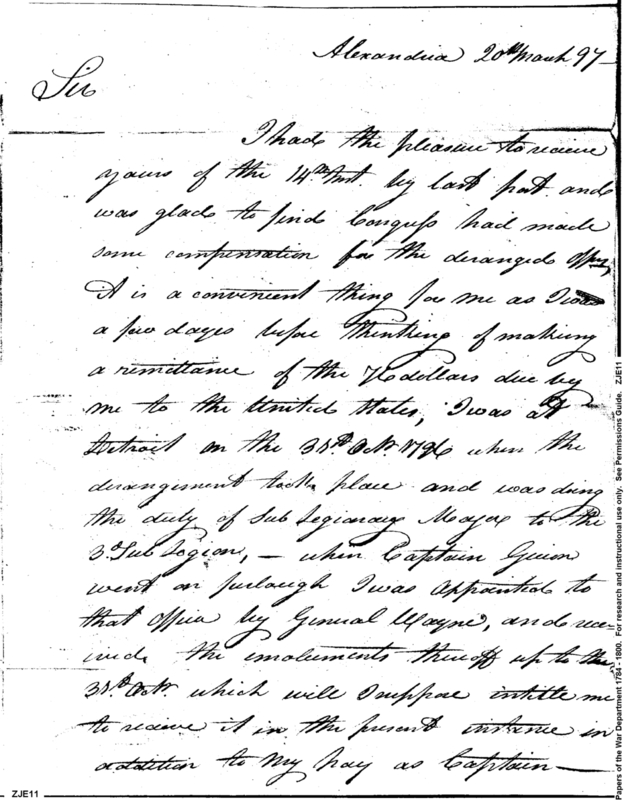 Alexandria 20th March 97
Sir
I had the pleasure to receive
yours of the 14th Inst. by last post and
was glad to find Congress had made
some compensation for the deranged
it is a convenient thing for me as I was
a few dayes before thinking of making
a remittance of the 76 dollars due by
me to the United States, I was at
Detroit on the 31st Octr. 1796 when the
derangement took place and was doing
the duty of Sub Legionary Mayor to the
3d Sub Legion, — when Captain Guion
went on furlough I was appointed to
that office by General Wayne, and rece
ived the emoluments thereoff up to the
31st Octr which will I suppose intitle me
to receive it in the present instance in
addition to my pay as Captain —
ZJE11
Papers of the War Department 1784 - 1800. For research and instructional use only. See Permissions Guide. ZJE11